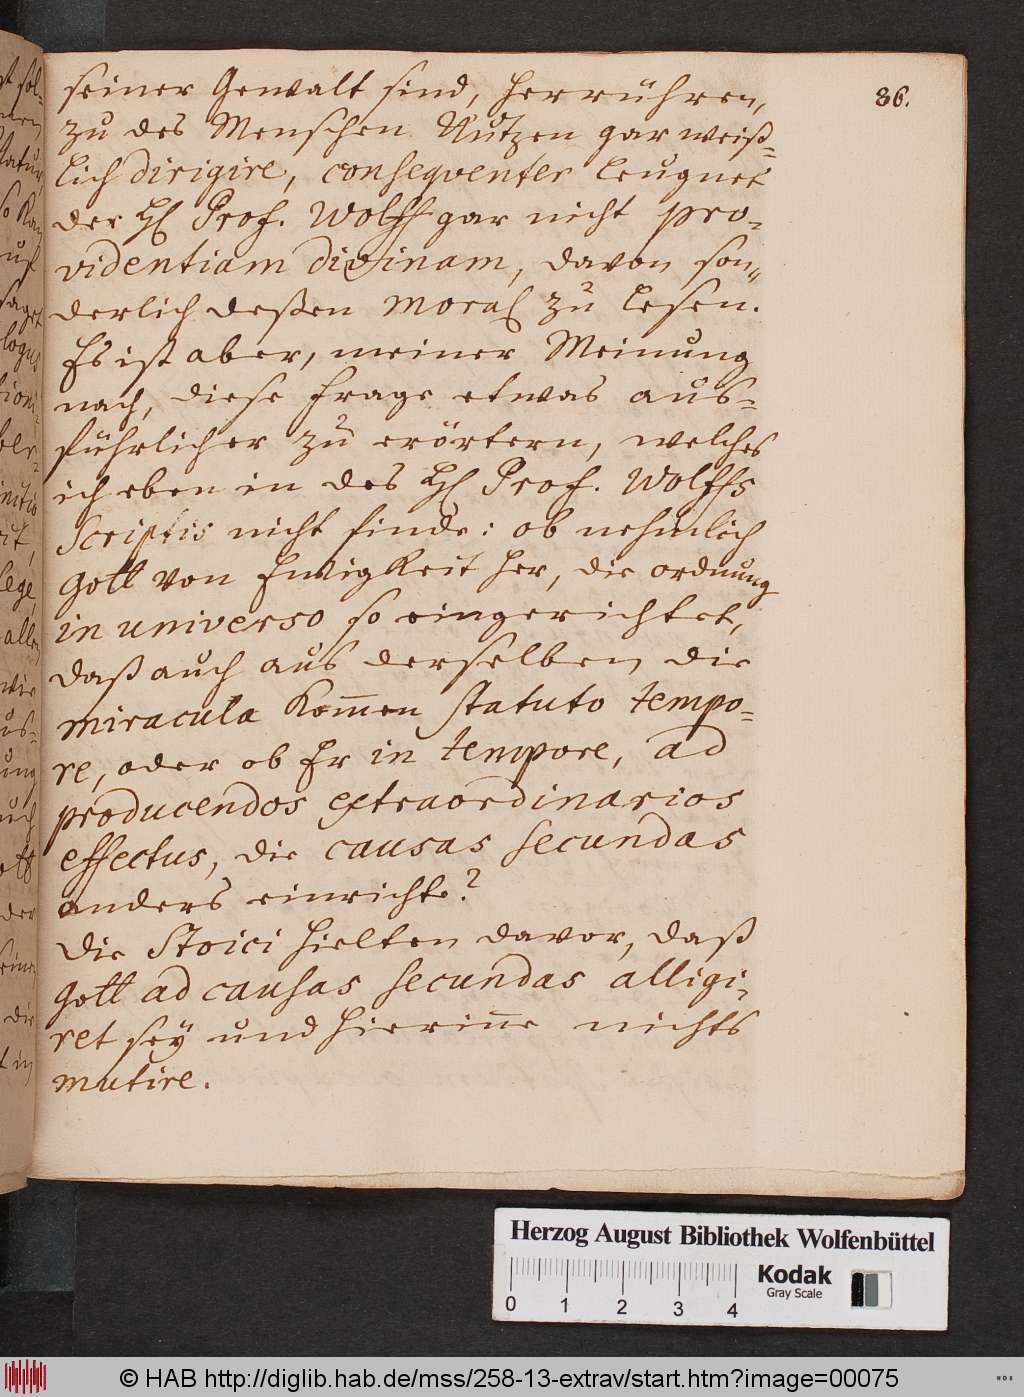 86.
seiner Gewalt sind, herrühren,
zu des Menschen Nutzen gar weiß=
lich dirigire, conseqventer leugnet
der H Prof. Wolff gar nicht pro-
videntiam divinam, davon son=
derlich deßen Moral zu lesen.
Es ist aber, meiner Meinung
nach, diese Frage etwas aus-
führlicher zu erörtern, welches
ich eben in des H Prof. Wolffs
Scriptis nicht finde: ob nehmlich
Gott von Ewigkeit her, die ordnung
in universo so eingerichtet,
daß auch aus derselben die
miracula kom̅en statuto tempo=
re, oder ob Er in tempore, ad
producendos extraordinarios
effectus, die causas secundas
anders einrichte?
Die Stoici hielten davor, daß
Gott ad causas secundas alligi-
ret sey und hierin̅e nichts
mutire.
Herzog August Bibliothek Wolfenbüttel
Kodak
Gray Scale
0 1 2 3 4
© HAB http://diglib.hab.de/mss/258-13-extrav/start.htm?image=00075